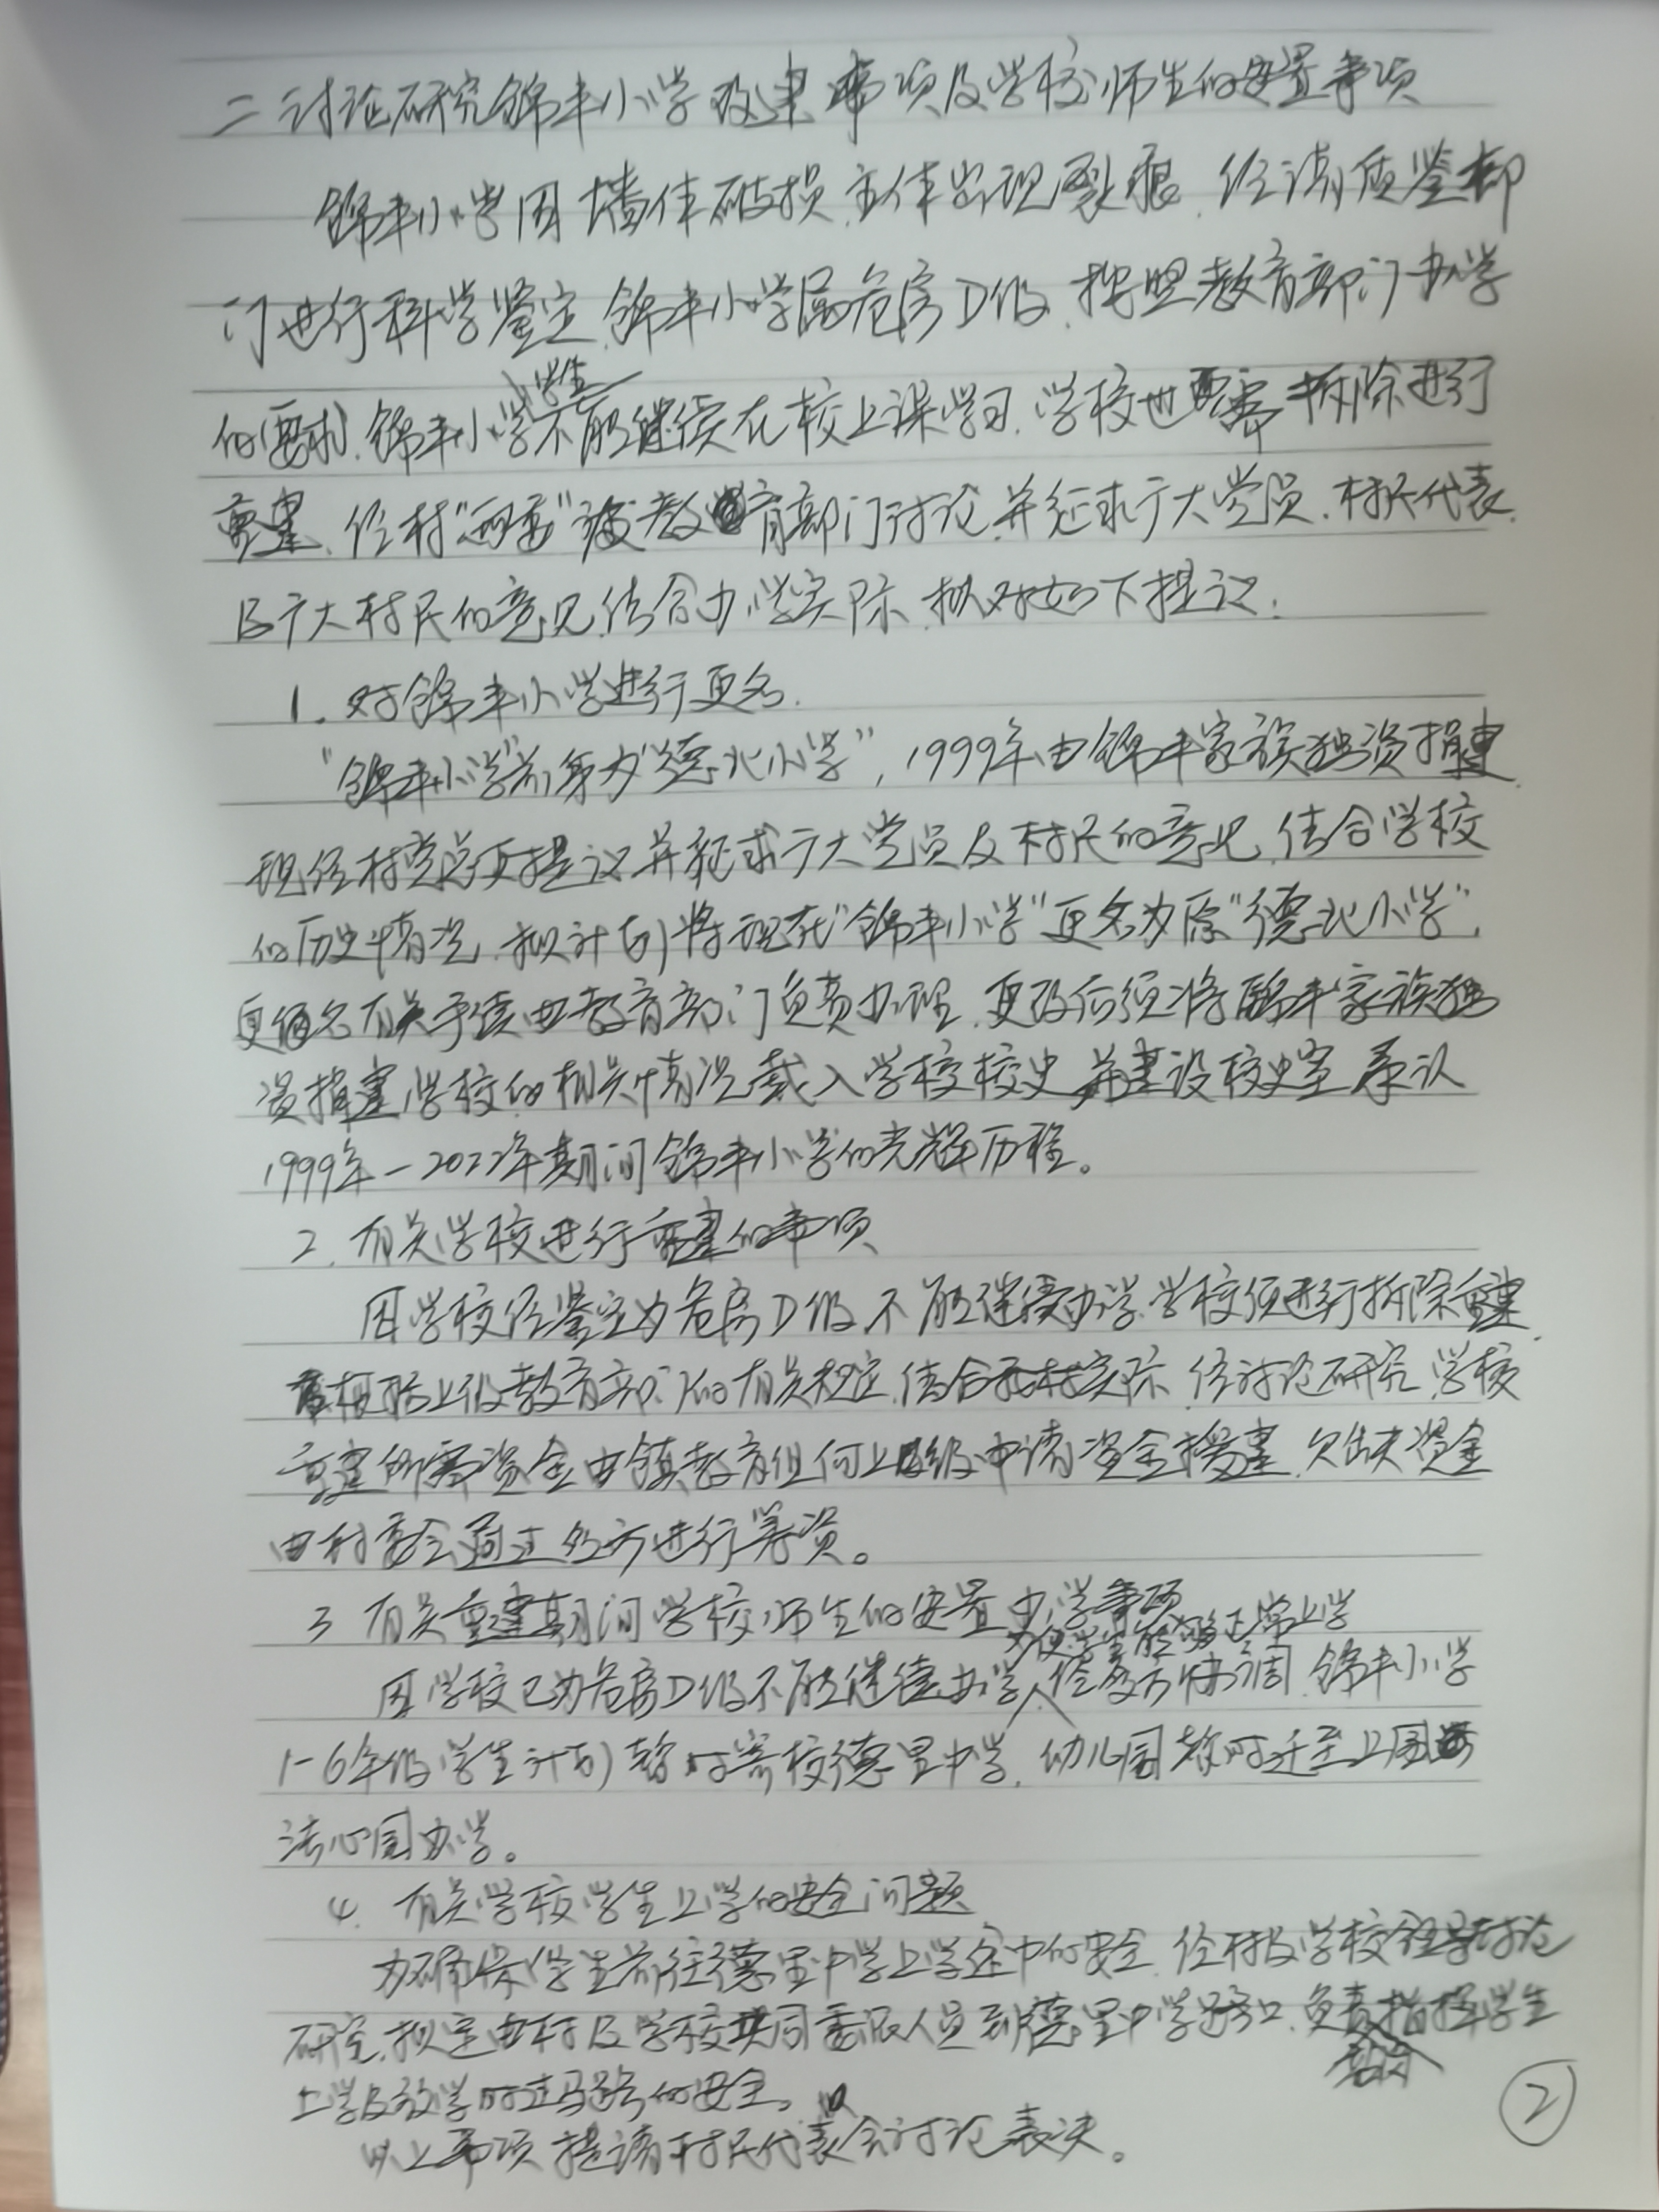 二 讨论研究锦丰小学改建事项及学校师生的安置事项
锦丰小学因墙体破损,主体出现裂痕,经请质鉴部
门进行科学鉴定,锦丰小学属危房D级,按照教育部门办学
的要求,锦丰小学不能继续在校上课学习,学校也需拆除进行
小学生
重建,经村"两委"及教育部门讨论,并征求广大党员、村民代表
及广大村民的意见,结合办学实际,拟对如下提议:
1、对锦丰小学进行更名.
"锦丰小学"前身为"德北小学",1999年由锦丰家族独资捐建,
现经村党总支提议并征求广大党员及村民的意见,结合学校
的历史情况,拟计划将现在"锦丰小学"更名为原"德北小学",
更名有关手续由教育部门负责办理,更改后须将锦丰家族独
资捐建学校的相关情况载入学校校史,并建设校史室,承认
1999年-2022年期间锦丰小学的光辉历程。
2、有关学校进行重建的事项
因学校经鉴定为危房D级,不能继续办学,学校须进行拆除重建,
根据上级教育部门的有关规定,结合我村实际,经讨论研究,学校
重建所需资金由镇教育组向上级申请资金援建,欠缺资金
由村委会通过多方进行筹资。
3 有关重建期间学校师生的安置办学事项
为使学生能够正常上学
因学校已为危房D级不能继续办学,经多方协调,锦丰小学
1-6年级学生计划暂时寄校德里中学,幼儿园暂时迁至上围
洁心园办学。
4、有关学校学生上学的安全问题
为确保学生前往德里中学上学途中的安全,经村及学校讨论
研究,拟定由村及学校共同委派人员到德里中学路口,负责指挥学生
上学及放学时过马路的安全。
以上事项提请村民代表会讨论表决。
②